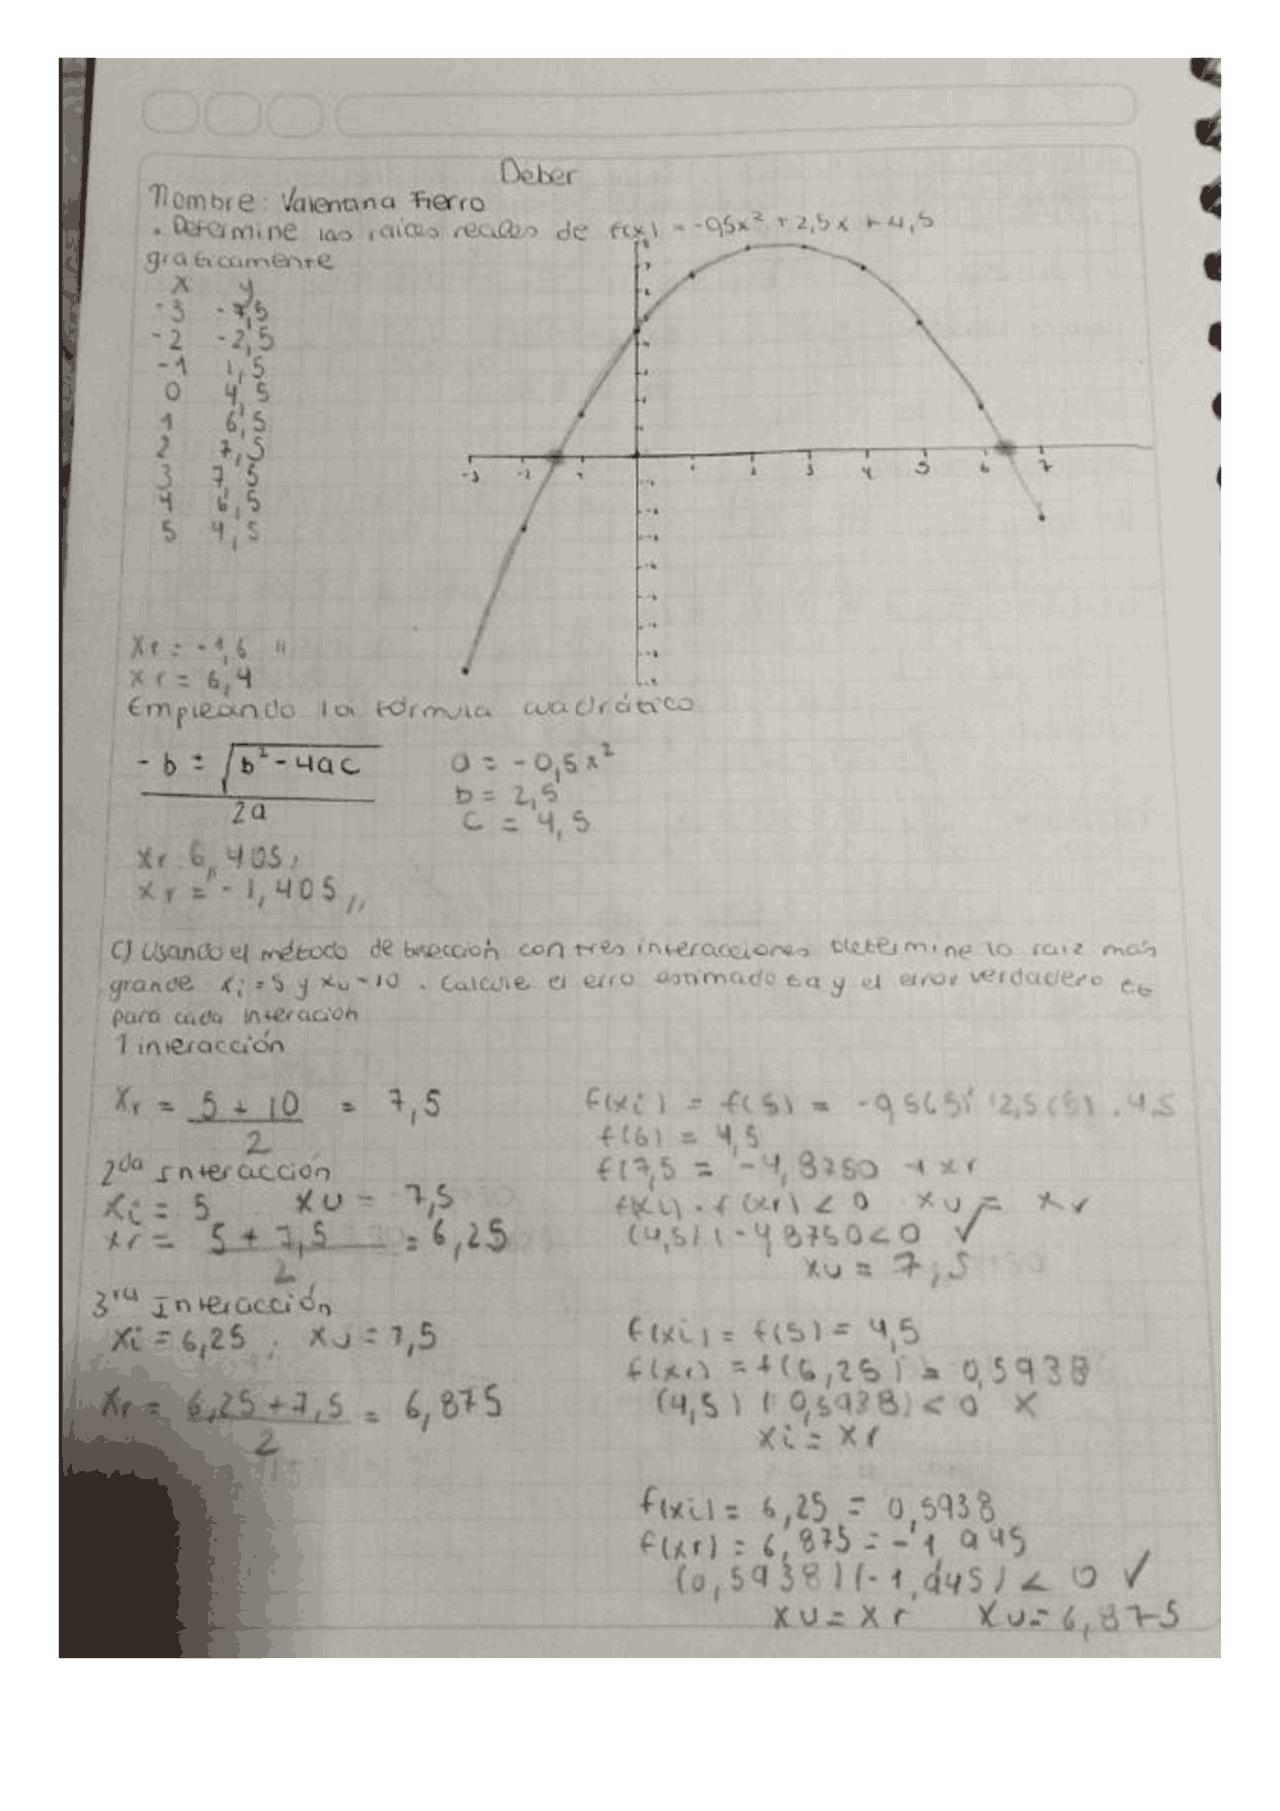 Deber
Nombre: Valentana Fierro
. Determine las raices reales de f(x) = -0,5x² + 2,5x + 4,5
graficamente
x y
-3 -7,5
-2 -2,5
-1 1,5
0 4,5
1 6,5
2 7,5
3 7,5
4 6,5
5 4,5
-3 -2 1 1 2 3 4 5 6 7
xr = -1,6 "
xr = 6,4
Empleando la fórmula cuadrático
-b ± √b² - 4ac
2a
a = -0,5x²
b = 2,5
c = 4,5
xr 6,405,,
xr = -1,405,,
C) Usando el método de bisección con tres interacciones Determine la raiz más
grande xi = 5 y xu = 10 . Calcule el erro estimado Ea y el error verdadero Et
para cada interación
1 interacción
xr = 5 + 10 = 7,5
2
f(xi) = f(5) = -0,5(5)² 2,5(5) . 4,5
f(6) = 4,5
f(7,5 = -4,8750 → xr
f(xi) . f(xr) < 0 xu = xr
(4,5) (-48750 < 0 ✓
xu = 7,5
2da Interacción
xi = 5 xu = 7,5
xr = 5 + 7,5 = 6,25
2
f(xi) = f(5) = 4,5
f(xr) = f(6,25) = 0,5938
(4,5) (0,5938) < 0 X
xi = xr
3ra Interacción
xi = 6,25 xu = 7,5
xr = 6,25 + 7,5 = 6,875
2
f(xi) = 6,25 = 0,5938
f(xr) = 6,875 = -1,945
(0,5938)(-1,945) < 0 ✓
xu = xr xu = 6,875